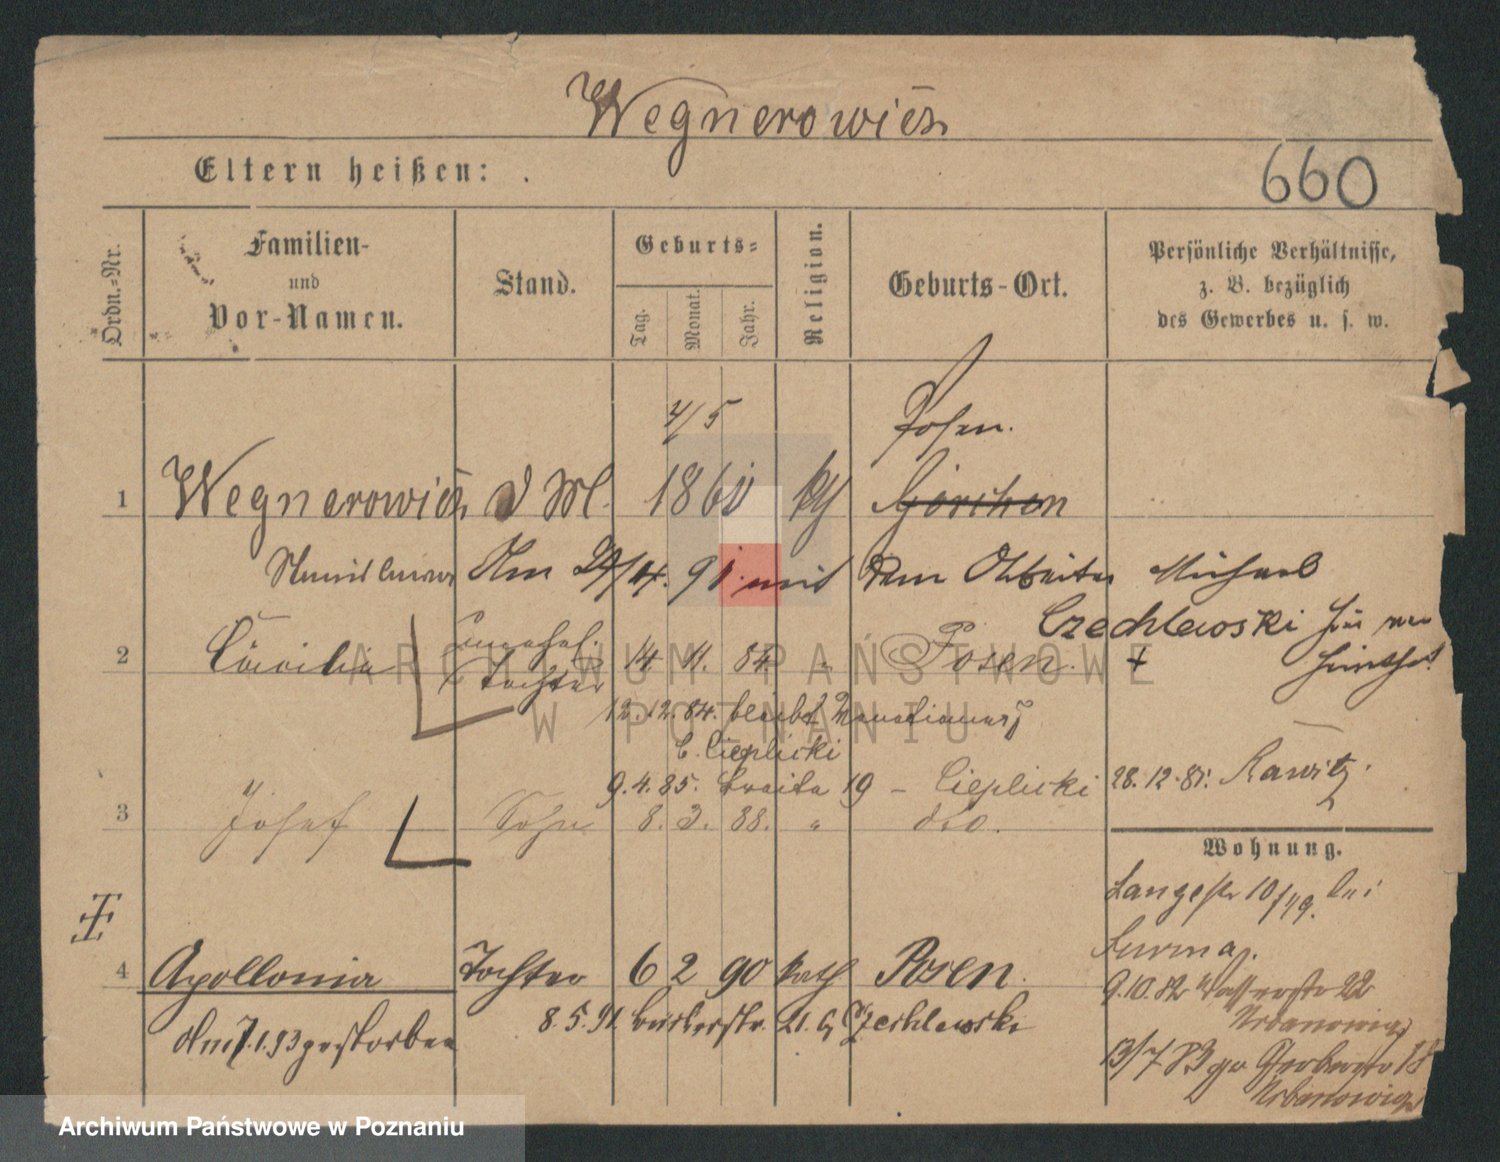 Wegnerowicz
660
Eltern heißen:
Ordn.-Nr.
Familien-
und
Vor-Namen.
Stand.
Geburts-
Tag.
Monat.
Jahr.
Religion.
Geburts-Ort.
Persönliche Verhältnisse,
z. B. bezüglich
des Gewerbes u. s. w.
4/5
Posen.
1 Wegnerowicz D M. 1860 Görchen
Am 91 mit dem Arbeiter Michael
Czechlewski
2 Cäcilie unehel. Tochter 14 11. 84 " Posen. +
12.12.84. bleibt
Cieplicki
9.4.85. Breite 19 – Cieplicki
28.12.81. Rawitz.
3 Josef Sohn 8. 3. 88. " dto.
Wohnung.
Langestr 10/ bei
4 Apollonia Tochter 6 2 90 kath Posen.
9.10.82 Wasserstr 22
Urbanowicz
8.5.91. 21. b Czechlewski
den 7.1.93 gestorben
13/7 83 Gerberstr 18
Urbanowicz
ARCHIWUM PAŃSTWOWE
W POZNANIU
Archiwum Państwowe w Poznaniu